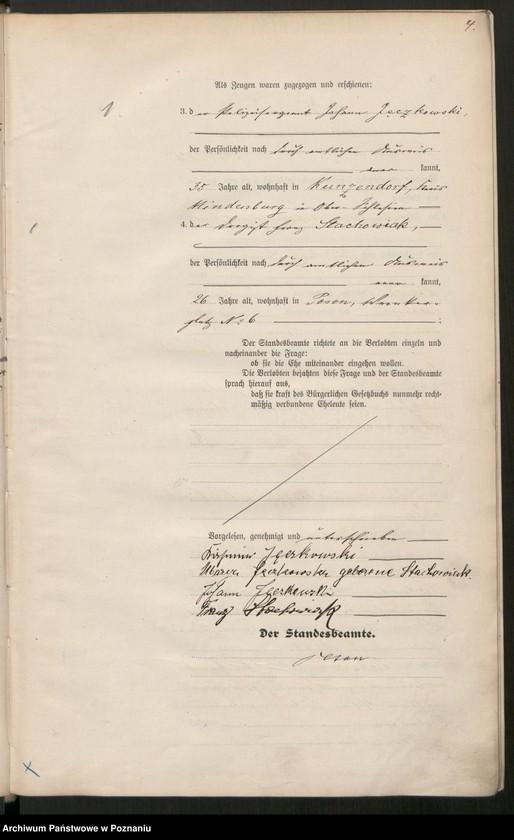 4.
Als Zeugen waren zugezogen und erschienen:
3. der Polizeisergeant Johann Jeczkowski,
der Persönlichkeit nach durch amtlichen Ausweis
kannt,
35 Jahre alt, wohnhaft in Kunzendorf, Kreis
Hindenburg in Ober-Schlesien
4. der Drogist Franz Stachowiak,
der Persönlichkeit nach durch amtlichen Ausweis
kannt,
26 Jahre alt, wohnhaft in Posen,
platz No 6
Der Standesbeamte richtete an die Verlobten einzeln und
nacheinander die Frage:
ob sie die Ehe miteinander eingehen wollen.
Die Verlobten bejahten diese Frage und der Standesbeamte
sprach hierauf aus,
daß sie kraft des Bürgerlichen Gesetzbuchs nunmehr recht-
mäßig verbundene Eheleute seien.
Vorgelesen, genehmigt und unterschrieben
Jeczkowski
geborene Stachowiak.
Johann Jeczkowski
Franz Stachowiak
Der Standesbeamte.
Archiwum Państwowe w Poznaniu